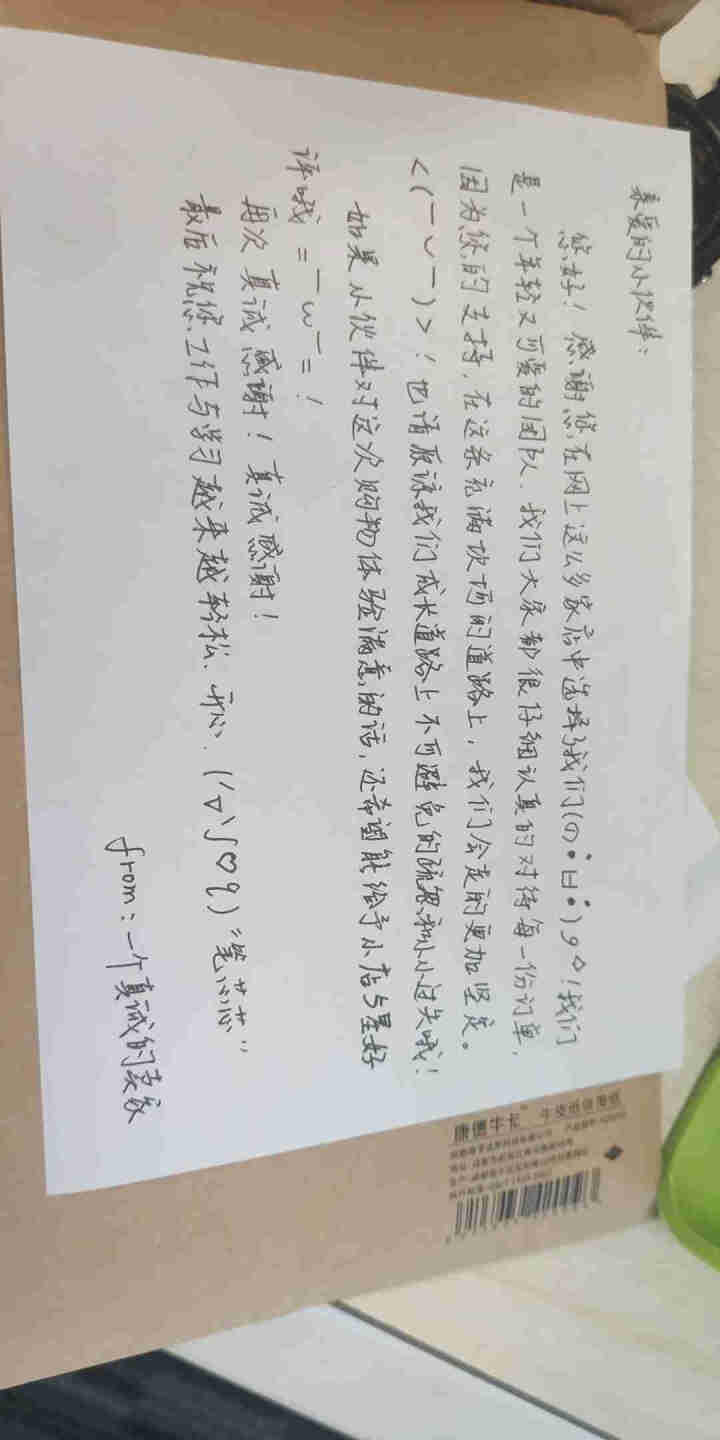 亲爱的小伙伴:
您好!感谢您在网上这么多家店中选择了我们(๑•̀ㅂ•́)و✧!我们
是一个年轻又可爱的团队,我们大家都很仔细认真的对待每一份订单,
因为您的支持,在这条充满坎坷的道路上,我们会走的更加坚定。
<(￣︶￣)>!也请原谅我们成长道路上不可避免的疏忽和小小过失哦!
如果小伙伴对这次购物体验满意的话,还希望能给予小店5星好
评哦=￣ω￣=!
再次真诚感谢!真诚感谢!
最后祝您工作与学习越来越轻松、开心、(′▽`ʃ♡ƪ)"笔芯芯"
from:一个真诚的卖家
康德牛卡